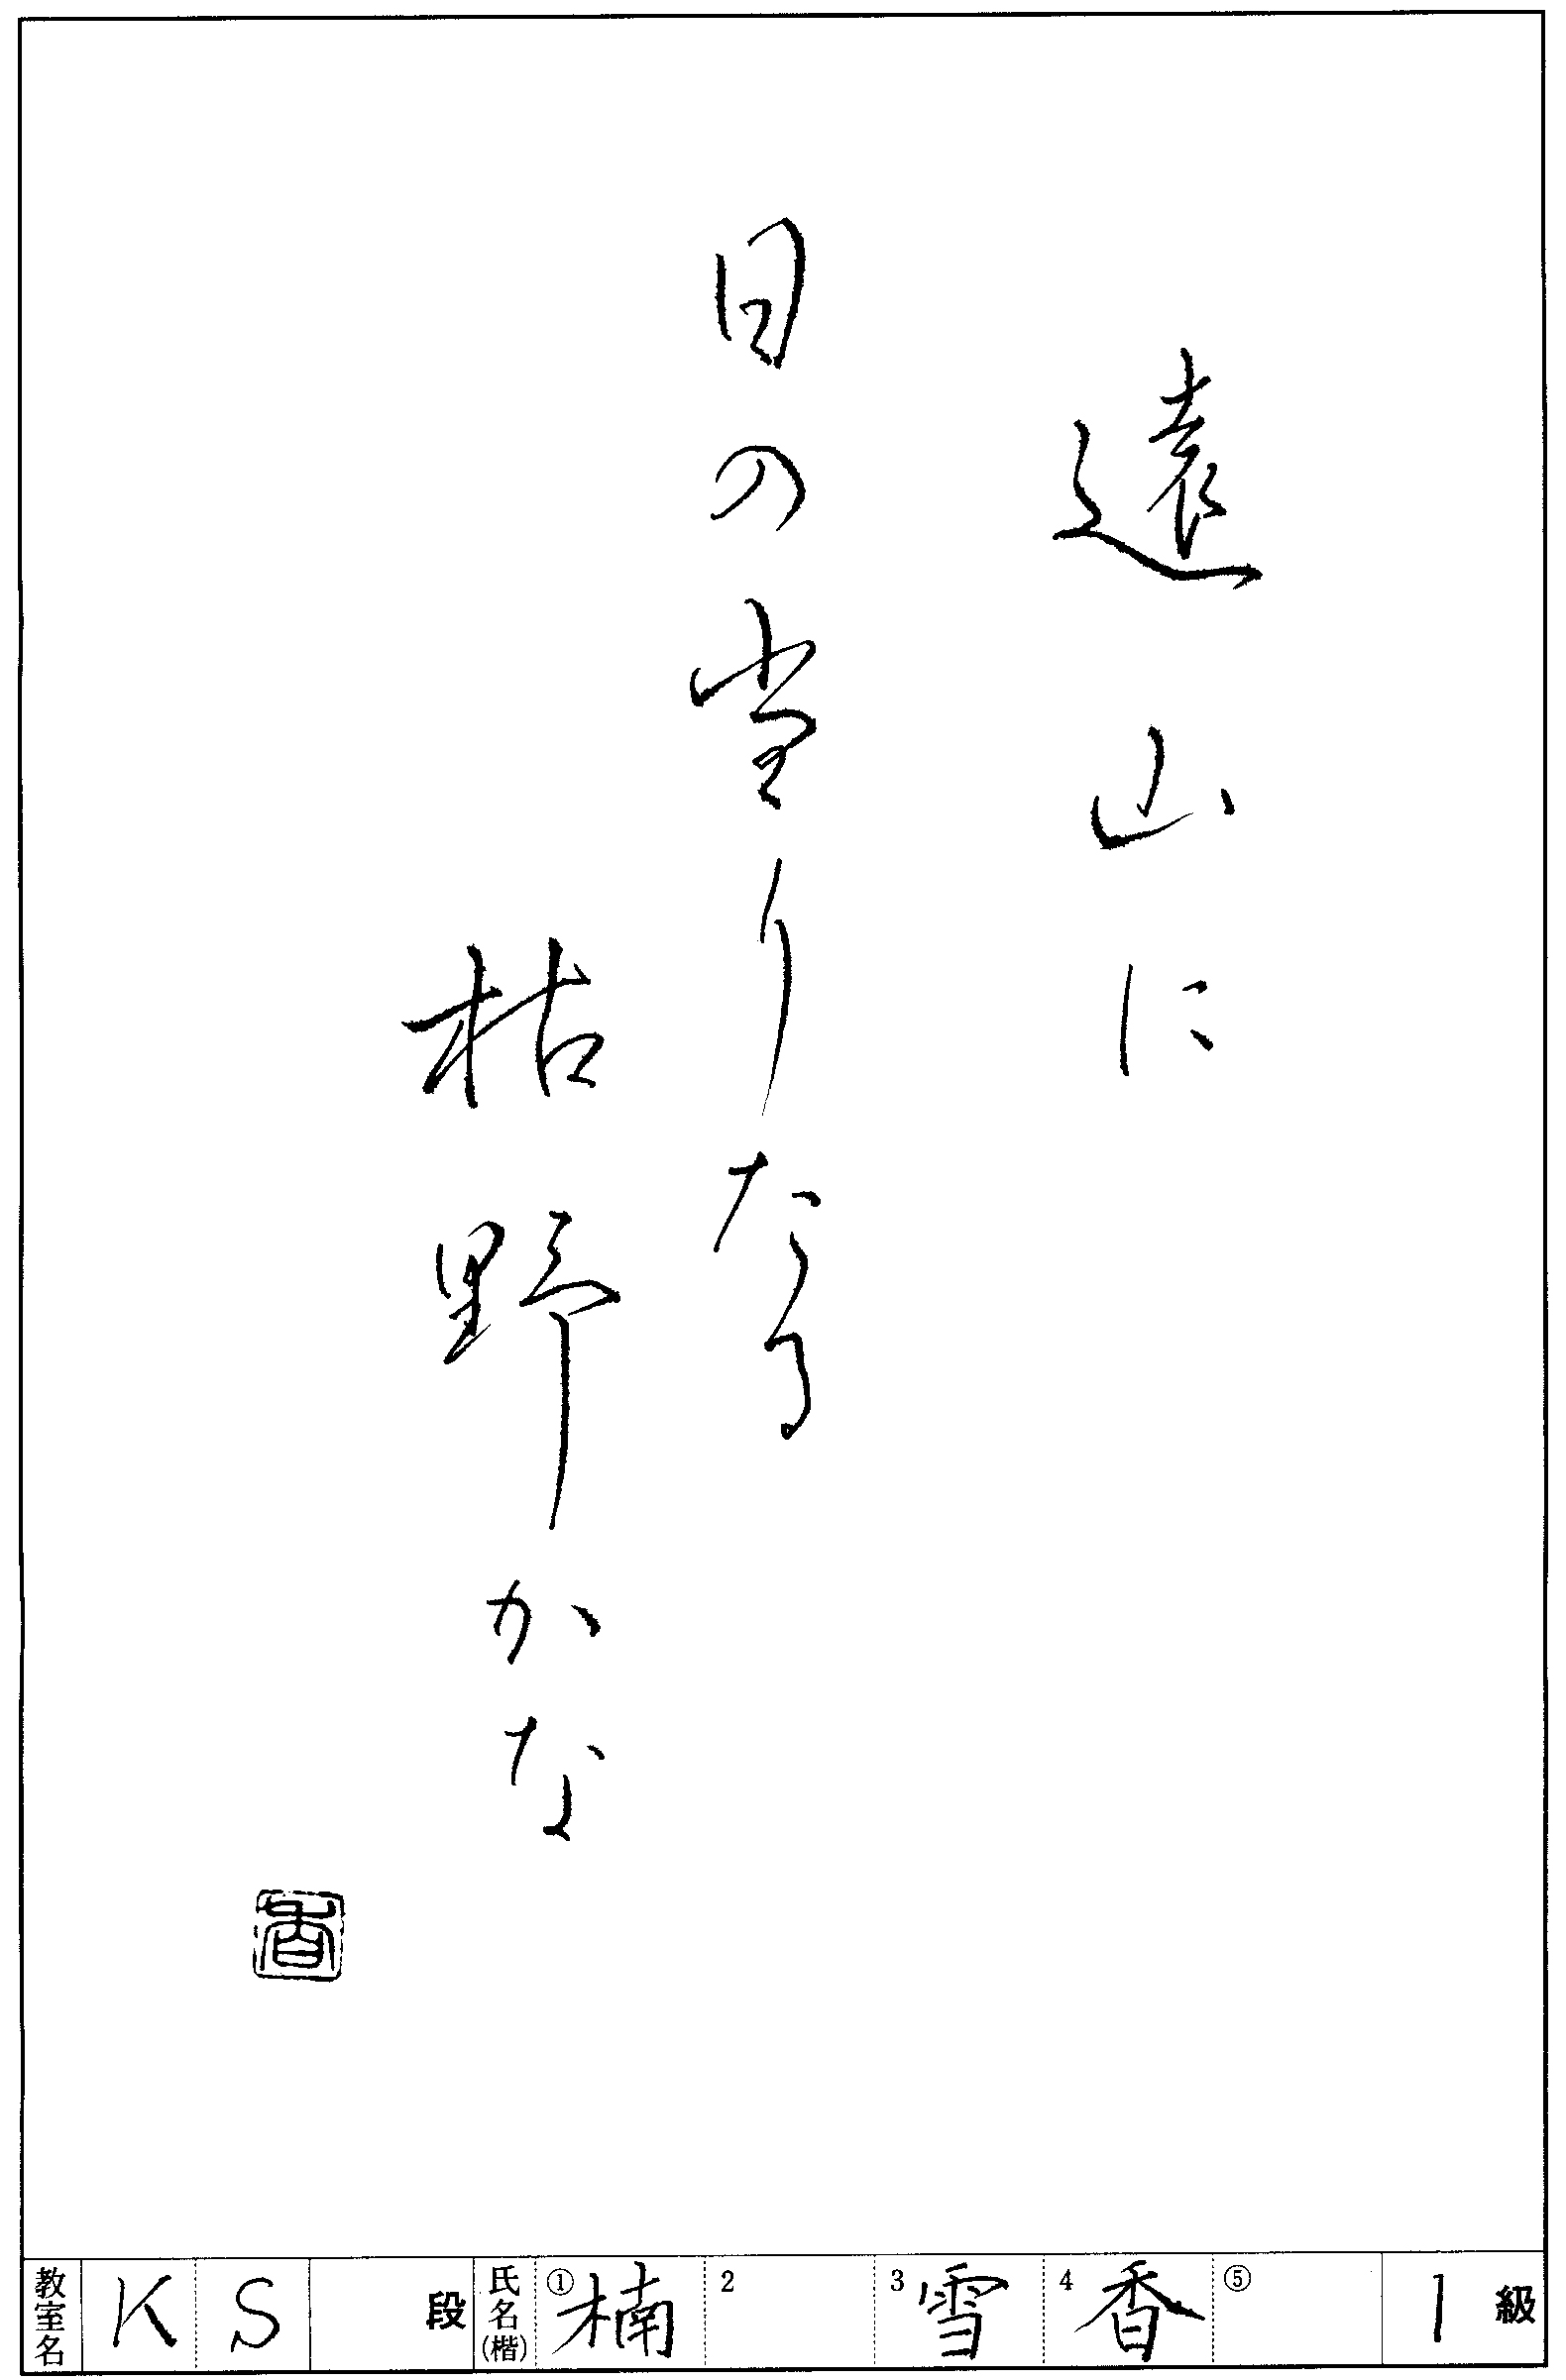 遠山に
日の当りたる
枯野かな
香
教室名 K S 段 氏名(楷) ①楠 2 3雪 4香 ⑤ 1級